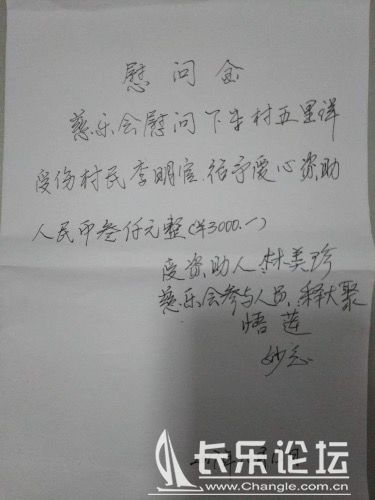 慰问金
慈乐会慰问下朱村五里洋
受伤村民李明官.给予爱心资助
人民币叁仟元整(¥3000.一)
受资助人林美珍
慈乐会参与人员.释大聚
悟莲
妙
长乐论坛
www.Changle.com.cn